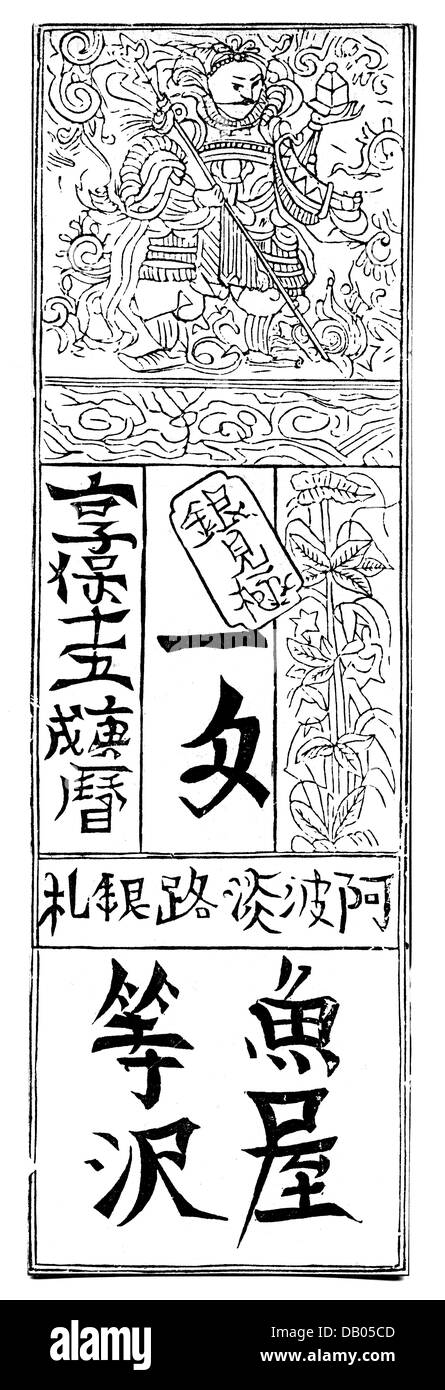 銀見極
一匁
享保十五
庚戌暦
阿波淡路銀札
魚屋
等沢
alamy
Image ID: DB05CD
www.alamy.com